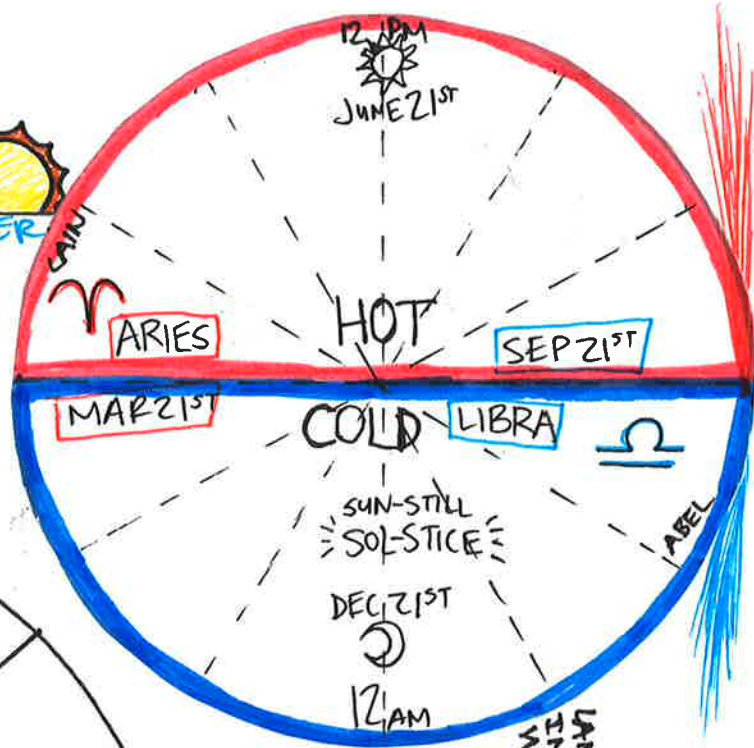 12 PM
JUNE 21ST
CAIN
HOT
ARIES
SEP 21ST
MAR 21ST
COLD
LIBRA
SUN-STILL
SOL-STICE
ABEL
DEC, 21ST
12 AM